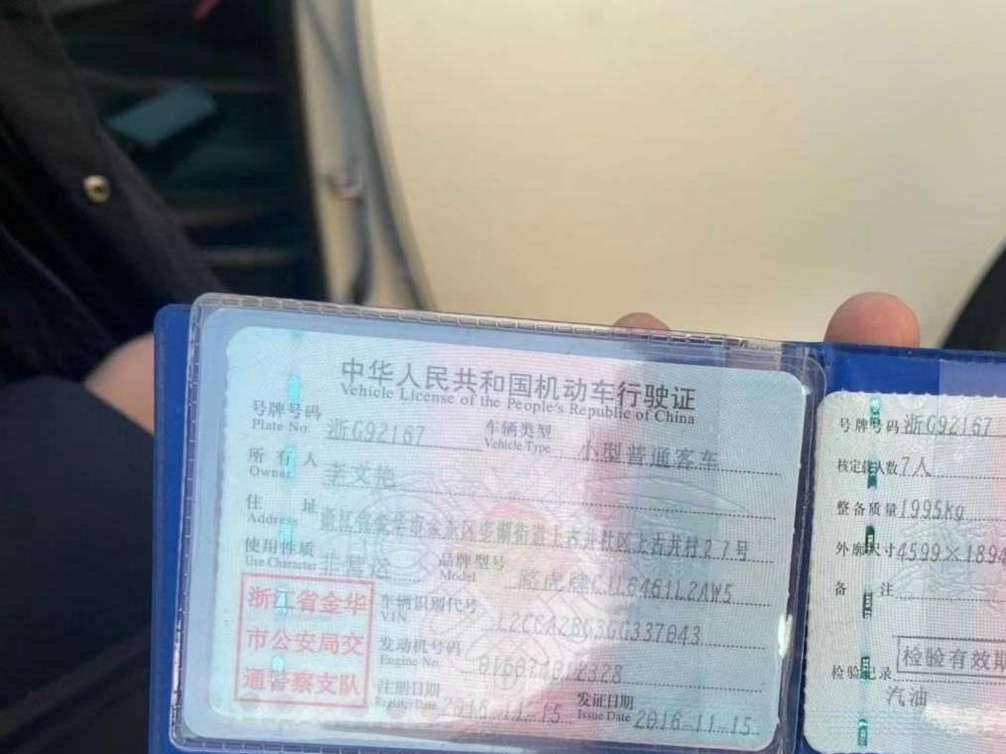 中华人民共和国机动车行驶证
Vehicle License of the People's Republic of China
号牌号码 浙G92167 车辆类型 小型普通客车
Plate No. Vehicle Type
所有人 李文艳
Owner
住址 浙江省金华市金东区多湖街道上古井社区上古井村27号
Address
使用性质 非营运 品牌型号 路虎牌CJL6461L2AW5
Use Character Model
浙江省金华
市公安局交
通警察支队
车辆识别代号
VIN
发动机号码
Engine No.
注册日期 2016-11-15 发证日期 2016-11-15
Register Date Issue Date
号牌号码 浙G92167
核定载人数 7人
整备质量 1995kg
外廓尺寸 4599×189
备注
检验有效期
检验记录
汽油